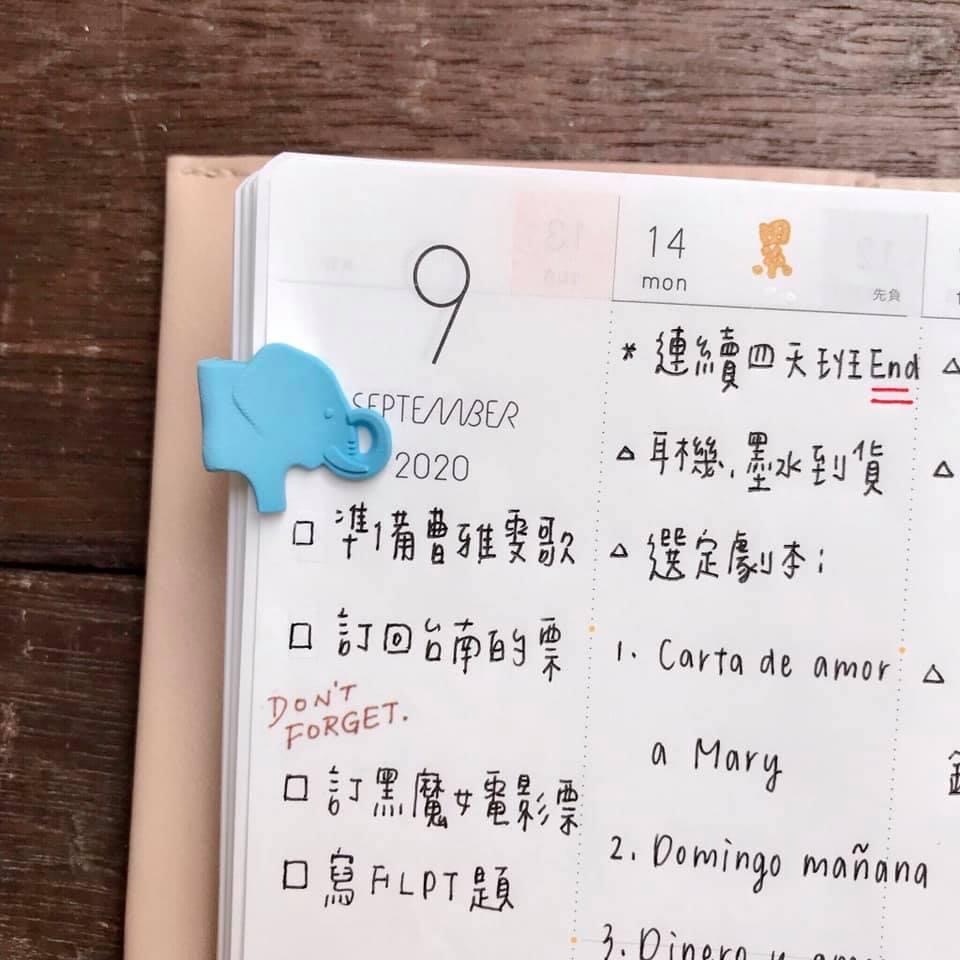 9
SEPTEMBER
2020
□ 準備曹雅雯歌
□ 訂回台南的票
DON'T
FORGET.
□ 訂黑魔女電影票
□ 寫FLPT題
14 累
mon
先負
* 連續四天班End
△ 耳機、墨水到貨
△ 選定劇本:
1. Carta de amor
a Mary
2. Domingo mañana
3. Dinero y